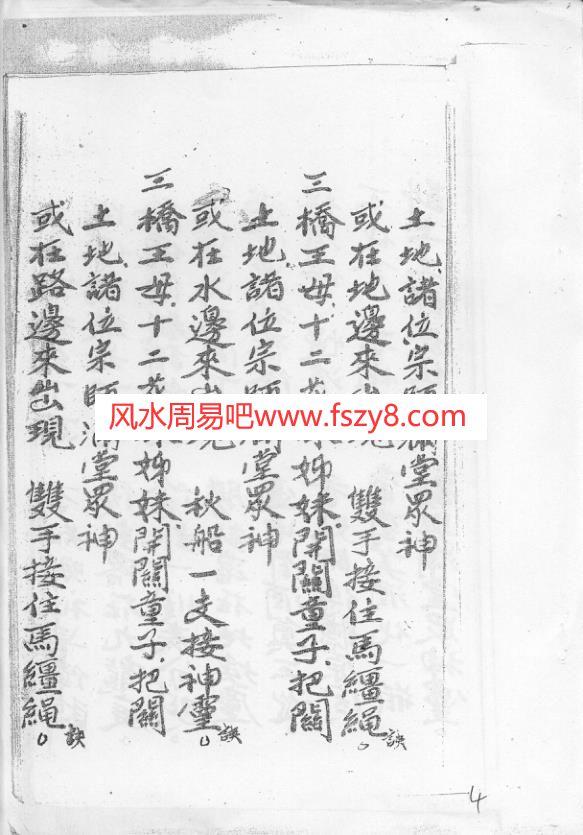 土地諸位宗師滿堂眾神
或在地邊來出現 雙手接住馬韁繩。訣
三橋王母、十二花姊妹、開關童子、把關
土地諸位宗師滿堂眾神
或在水邊來出現 秋船一支接神靈。訣
三橋王母、十二花姊妹開關童子、把關
土地、諸位宗師滿堂眾神
或在路邊來出現 雙手接住馬韁繩。訣
风水周易吧www.fszy8.com
4